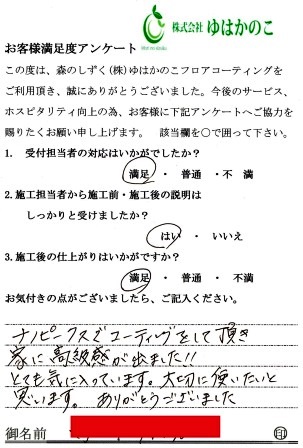 株式会社 ゆはかのこ
お客様満足度アンケート
この度は、森のしずく(株)ゆはかのこフロアコーティングを
ご利用頂き、誠にありがとうございました。今後のサービス、
ホスピタリティ向上の為、お客様に下記アンケートへご協力を
賜りたくお願い申し上げます。　該当欄を〇で囲って下さい。
1.　受付担当者の対応はいかがでしたか？
満足 ・ 普通 ・ 不満
2.施工担当者から施工前・施工後の説明は
しっかりと受けましたか？
はい ・ いいえ
3.施工後の仕上がりはいかがですか？
満足 ・ 普通 ・ 不満
お気付きの点がございましたら、ご記入ください。
ナノピークスでコーティングをして頂き
家に高級感が出ました!!
とても気に入っています。大切に使いたいと
思います。 ありがとうございました
御名前 印